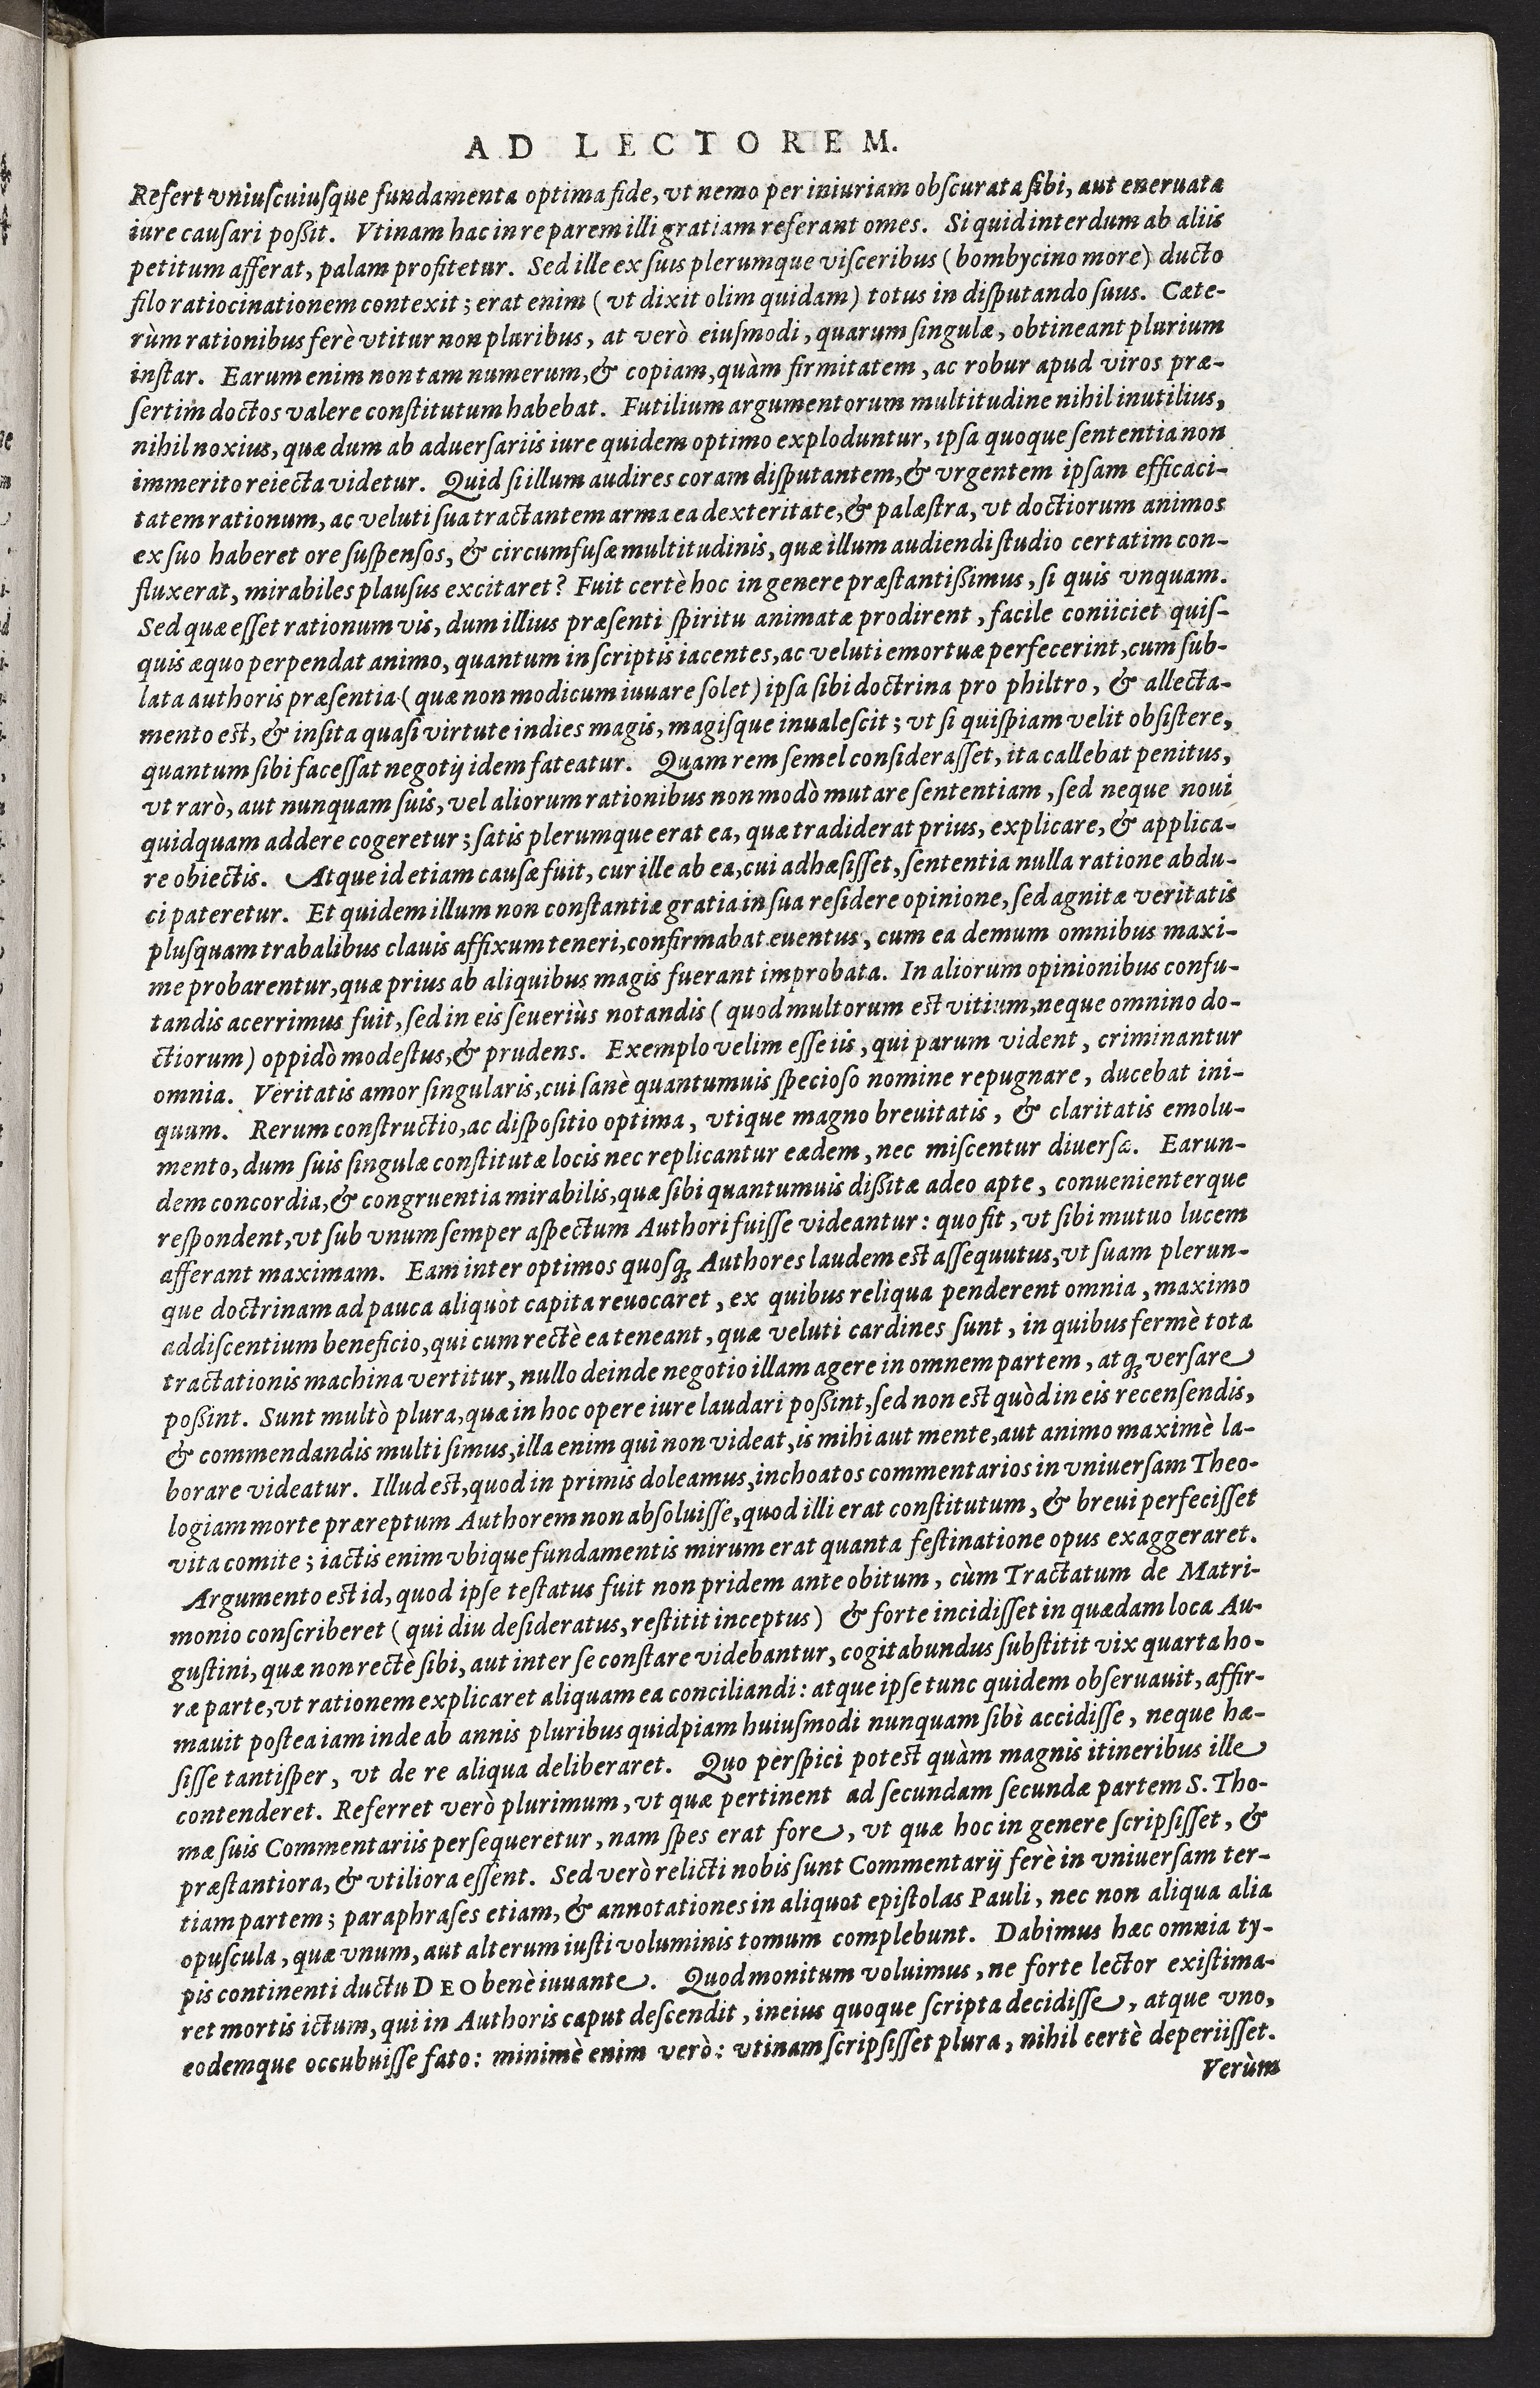 AD LECTOREM.
Refert vniuſcuiuſque fundamenta optima fide, vt nemo per iniuriam obſcurata ſibi, aut eneruata
iure cauſari poßit. Vtinam hac in re parem illi gratiam referant omes. Si quid interdum ab aliis
petitum afferat, palam profitetur. Sed ille ex ſuis plerumque viſceribus (bombycino more) ducto
filo ratiocinationem contexit; erat enim (vt dixit olim quidam) totus in diſputando ſuus. Cæte-
rùm rationibus ferè vtitur non pluribus, at verò eiuſmodi, quarum ſingulæ, obtineant plurium
inſtar. Earum enim non tam numerum, & copiam, quàm firmitatem, ac robur apud viros præ-
ſertim doctos valere conſtitutum habebat. Futilium argumentorum multitudine nihil inutilius,
nihil noxius, quæ dum ab aduerſariis iure quidem optimo exploduntur, ipſa quoque ſententia non
immerito reiecta videtur. Quid ſi illum audires coram diſputantem, & vrgentem ipſam efficaci-
tatem rationum, ac veluti ſua tractantem arma ea dexteritate, & palæſtra, vt doctiorum animos
ex ſuo haberet ore ſuſpenſos, & circumfuſæ multitudinis, quæ illum audiendi ſtudio certatim con-
fluxerat, mirabiles plauſus excitaret? Fuit certè hoc in genere præſtantißimus, ſi quis vnquam.
Sed quæ eſſet rationum vis, dum illius præſenti ſpiritu animatæ prodirent, facile coniiciet quiſ-
quis æquo perpendat animo, quantum in ſcriptis iacentes, ac veluti emortuæ perfecerint, cum ſub-
lata authoris præſentia (quæ non modicum iuuare ſolet) ipſa ſibi doctrina pro philtro, & allecta-
mento est, & inſita quaſi virtute indies magis, magiſque inualeſcit; vt ſi quiſpiam velit obſiſtere,
quantum ſibi faceſſat negotij idem fateatur. Quam rem ſemel conſideraſſet, ita callebat penitus,
vt rarò, aut nunquam ſuis, vel aliorum rationibus non modò mutare ſententiam, ſed neque noui
quidquam addere cogeretur; ſatis plerumque erat ea, quæ tradiderat prius, explicare, & applica-
re obiectis. Atque id etiam cauſæ fuit, cur ille ab ea, cui adhæſiſſet, ſententia nulla ratione abdu-
ci pateretur. Et quidem illum non conſtantiæ gratia in ſua reſidere opinione, ſed agnitæ veritatis
pluſquam trabalibus clauis affixum teneri, confirmabat euentus, cum ea demum omnibus maxi-
me probarentur, quæ prius ab aliquibus magis fuerant improbata. In aliorum opinionibus confu-
tandis acerrimus fuit, ſed in eis ſeueriùs notandis (quod multorum est vitium, neque omnino do-
ctiorum) oppidò modeſtus, & prudens. Exemplo velim eſſe iis, qui parum vident, criminantur
omnia. Veritatis amor ſingularis, cui ſanè quantumuis ſpecioſo nomine repugnare, ducebat ini-
quum. Rerum conſtructio, ac diſpoſitio optima, vtique magno breuitatis, & claritatis emolu-
mento, dum ſuis ſingulæ conſtitutæ locis nec replicantur eædem, nec miſcentur diuerſæ. Earun-
dem concordia, & congruentia mirabilis, quæ ſibi quantumuis dißitæ adeo apte, conuenienterque
reſpondent, vt ſub vnum ſemper aſpectum Authori fuiſſe videantur: quo fit, vt ſibi mutuo lucem
afferant maximam. Eam inter optimos quoſq; Authores laudem est aſſequutus, vt ſuam plerun-
que doctrinam ad pauca aliquòt capita reuocaret, ex quibus reliqua penderent omnia, maximo
addiſcentium beneficio, qui cum rectè ea teneant, quæ veluti cardines ſunt, in quibus fermè tota
tractationis machina vertitur, nullo deinde negotio illam agere in omnem partem, atq; verſare
poßint. Sunt multò plura, quæ in hoc opere iure laudari poßint, ſed non est quòd in eis recenſendis,
& commendandis multi ſimus, illa enim qui non videat, is mihi aut mente, aut animo maximè la-
borare videatur. Illud est, quod in primis doleamus, inchoatos commentarios in vniuerſam Theo-
logiam morte præreptum Authorem non abſoluiſſe, quod illi erat conſtitutum, & breui perfeciſſet
vita comite; iactis enim vbique fundamentis mirum erat quanta feſtinatione opus exaggeraret.
Argumento est id, quod ipſe teſtatus fuit non pridem ante obitum, cùm Tractatum de Matri-
monio conſcriberet (qui diu deſideratus, reſtitit inceptus) & forte incidiſſet in quædam loca Au-
guſtini, quæ non rectè ſibi, aut inter ſe conſtare videbantur, cogitabundus ſubſtitit vix quarta ho-
ræ parte, vt rationem explicaret aliquam ea conciliandi: atque ipſe tunc quidem obſeruauit, affir-
mauit poſtea iam inde ab annis pluribus quidpiam huiuſmodi nunquam ſibì accidiſſe, neque hæ-
ſiſſe tantiſper, vt de re aliqua deliberaret. Quo perſpici potest quàm magnis itineribus ille
contenderet. Referret verò plurimum, vt quæ pertinent ad ſecundam ſecundæ partem S. Tho-
mæ ſuis Commentariis perſequeretur, nam ſpes erat fore, vt quæ hoc in genere ſcripſiſſet, &
præſtantiora, & vtiliora eſſent. Sed verò relicti nobis ſunt Commentarij ferè in vniuerſam ter-
tiam partem; paraphraſes etiam, & annotationes in aliquot epiſtolas Pauli, nec non aliqua alia
opuſcula, quæ vnum, aut alterum iuſti voluminis tomum complebunt. Dabimus hæc omnia ty-
pis continenti ductu DEO benè iuuante. Quod monitum voluimus, ne forte lector exiſtima-
ret mortis ictum, qui in Authoris caput deſcendit, in eius quoque ſcripta decidiſſe, atque vno,
eodemque occubuiſſe fato: minimè enim verò: vtinam ſcripſiſſet plura, nihil certè deperiiſſet.
Verùm